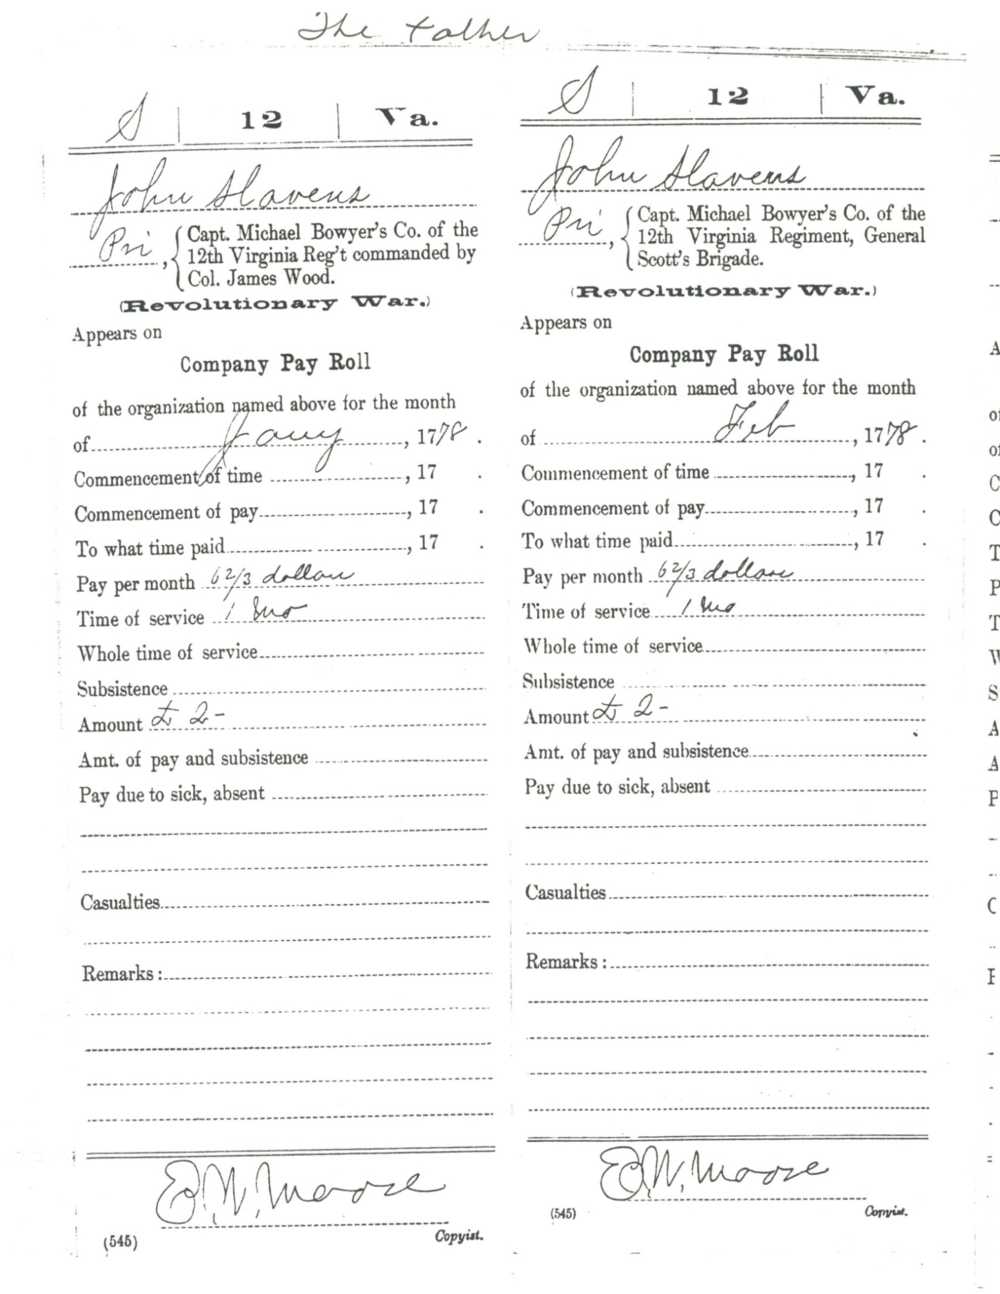 The Father
S | 12 | Va.
John Slavens
Pri, { Capt. Michael Bowyer's Co. of the
12th Virginia Reg't commanded by
Col. James Wood.
(Revolutionary War.)
Appears on
Company Pay Roll
of the organization named above for the month
of Jany, 1778.
Commencement of time , 17 .
Commencement of pay , 17 .
To what time paid , 17 .
Pay per month 6 2/3 dollars
Time of service 1 mo
Whole time of service
Subsistence
Amount £ 2-
Amt. of pay and subsistence
Pay due to sick, absent
Casualties
Remarks:
E.W. Moore
Copyist.
(545)
S | 12 | Va.
John Slavens
Pri, { Capt. Michael Bowyer's Co. of the
12th Virginia Regiment, General
Scott's Brigade.
(Revolutionary War.)
Appears on
Company Pay Roll
of the organization named above for the month
of Feb, 1778.
Commencement of time , 17 .
Commencement of pay , 17 .
To what time paid , 17 .
Pay per month 6 2/3 dollars
Time of service 1 mo
Whole time of service
Subsistence
Amount £ 2-
Amt. of pay and subsistence
Pay due to sick, absent
Casualties
Remarks:
E.W. Moore
(545) Copyist.